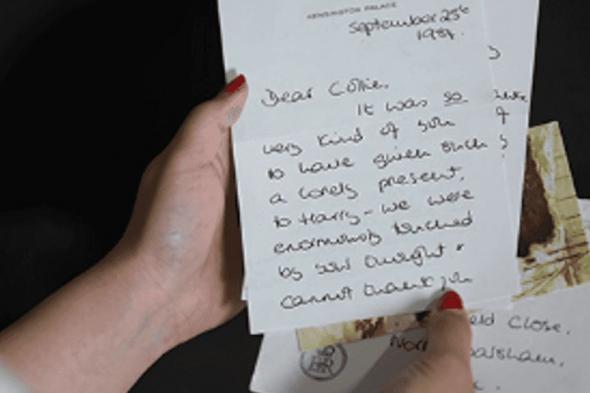 KENSINGTON PALACE
September 25th
1984.
Dear Collie,
It was so
very kind of you
to have given such
a lovely present,
to Harry – we were
enormously touched
by your thought &
cannot thank you
eld Close,
Nor
arsham,